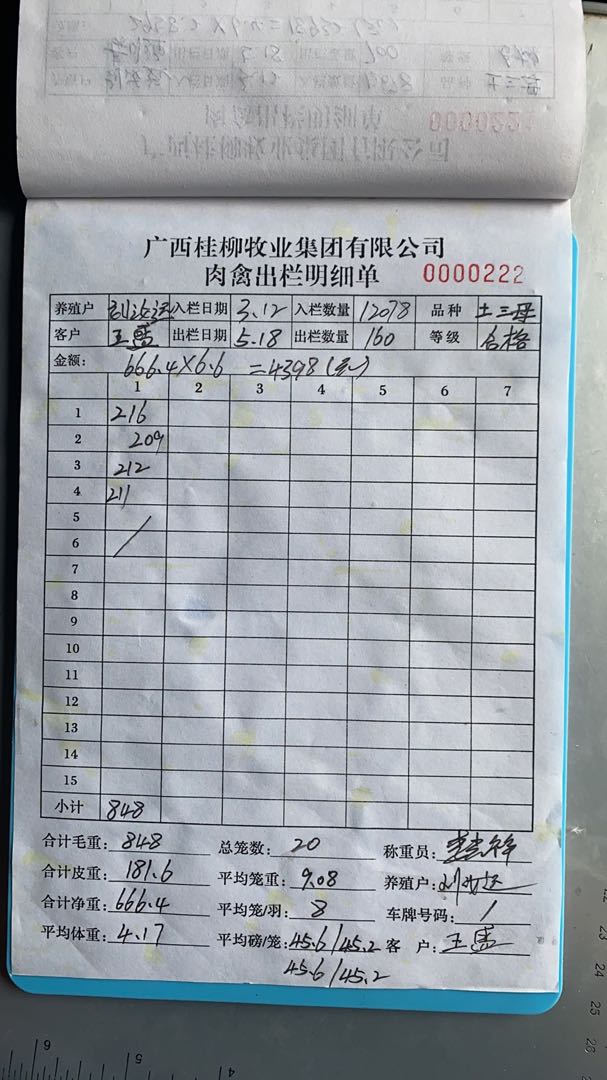 0000221
广西桂柳牧业集团有限公司
肉禽出栏明细单 0000222
养殖户 入栏日期 3.12 入栏数量 12078 品种 土三母
客户 王盛 出栏日期 5.18 出栏数量 160 等级 合格
金额: 666.4×6.6 =4398(元)
1 2 3 4 5 6 7
1 216
2 209
3 212
4 211
5
6
7
8
9
10
11
12
13
14
15
小计 848
合计毛重: 848 总笼数: 20 称重员:
合计皮重: 181.6 平均笼重: 9.08 养殖户:
合计净重: 666.4 平均笼/羽: 8 车牌号码: /
平均体重: 4.17 平均磅/笼: 45.6/45.2 客 户: 王盛
45.6/45.2